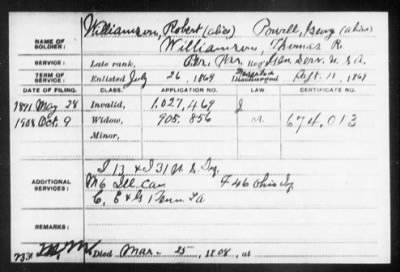 Williamson, Robert (alias) Powell, Henry (alias)
NAME OF SOLDIER: Williamson, Thomas R.
SERVICE: Late rank, Reg't Gen. Serv. U.S.A.
TERM OF SERVICE: Enlisted July 26, 1864 Discharged Sept. 11, 186
DATE OF FILING. CLASS. APPLICATION NO. LAW. CERTIFICATE NO.
1891 May 28 Invalid, 1,027,469 J
1908 Oct. 9 Widow, 905,856 674,013
Minor,
ADDITIONAL SERVICES: I 17 & I 31 U.S. Inf.
M 6 Ill Cav F 46 Ohio Inf
C, E & G 1 Penn L A.
REMARKS:
Died Mar. 25, 1808, at